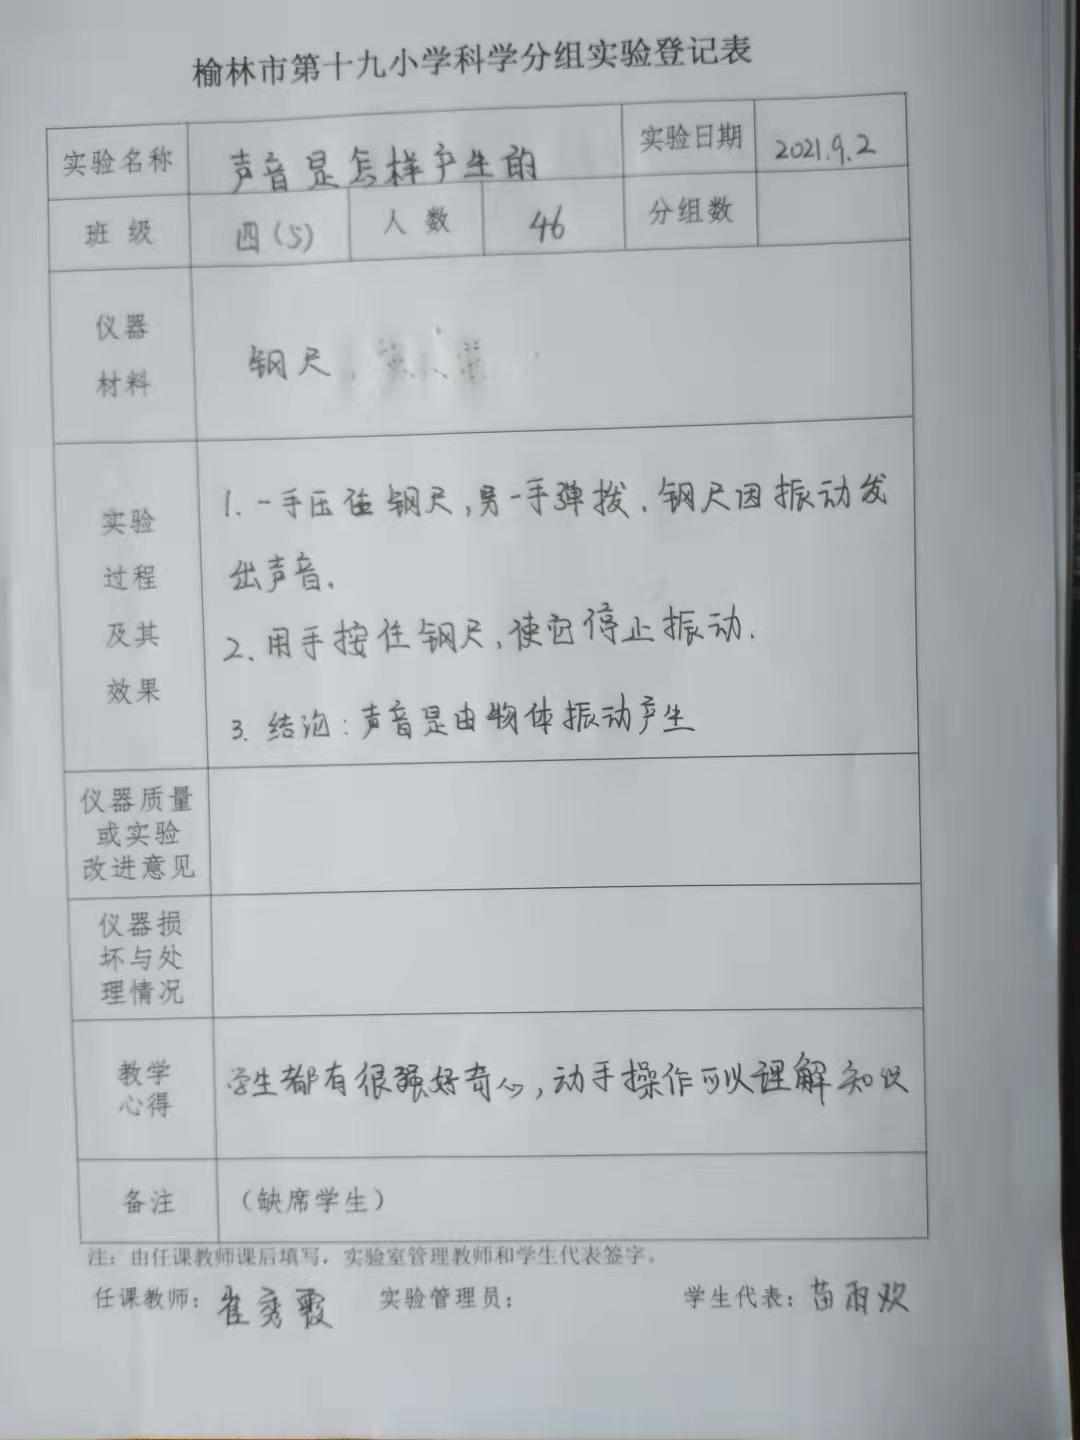 榆林市第十九小学科学分组实验登记表
实验名称 声音是怎样产生的 实验日期 2021.9.2
班 级 四(5) 人 数 46 分组数
仪器
材料
钢尺
实验
过程
及其
效果
1. 一手压住钢尺,另一手弹拨.钢尺因振动发
出声音.
2. 用手按住钢尺,使它停止振动.
3. 结论:声音是由物体振动产生
仪器质量
或实验
改进意见
仪器损
坏与处
理情况
教学
心得
学生都有很强好奇心,动手操作可以理解知识
备注 (缺席学生)
注:由任课教师课后填写,实验室管理教师和学生代表签字。
任课教师:崔秀霞 实验管理员: 学生代表:苗雨欢